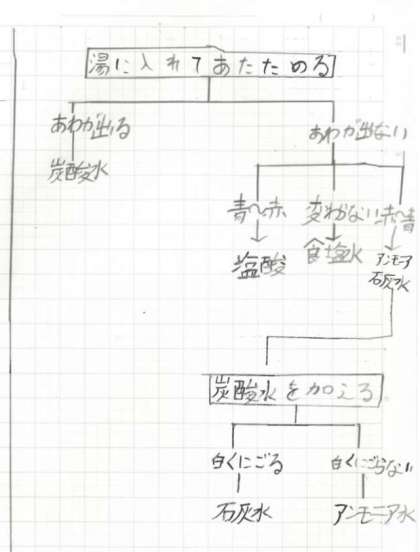 湯に入れてあたためる
あわが出る
あわが出ない
炭酸水
青→赤
変わらない
赤→青
塩酸
食塩水
アンモニア
石灰水
炭酸水を加える
白くにごる
白くにごらない
石灰水
アンモニア水